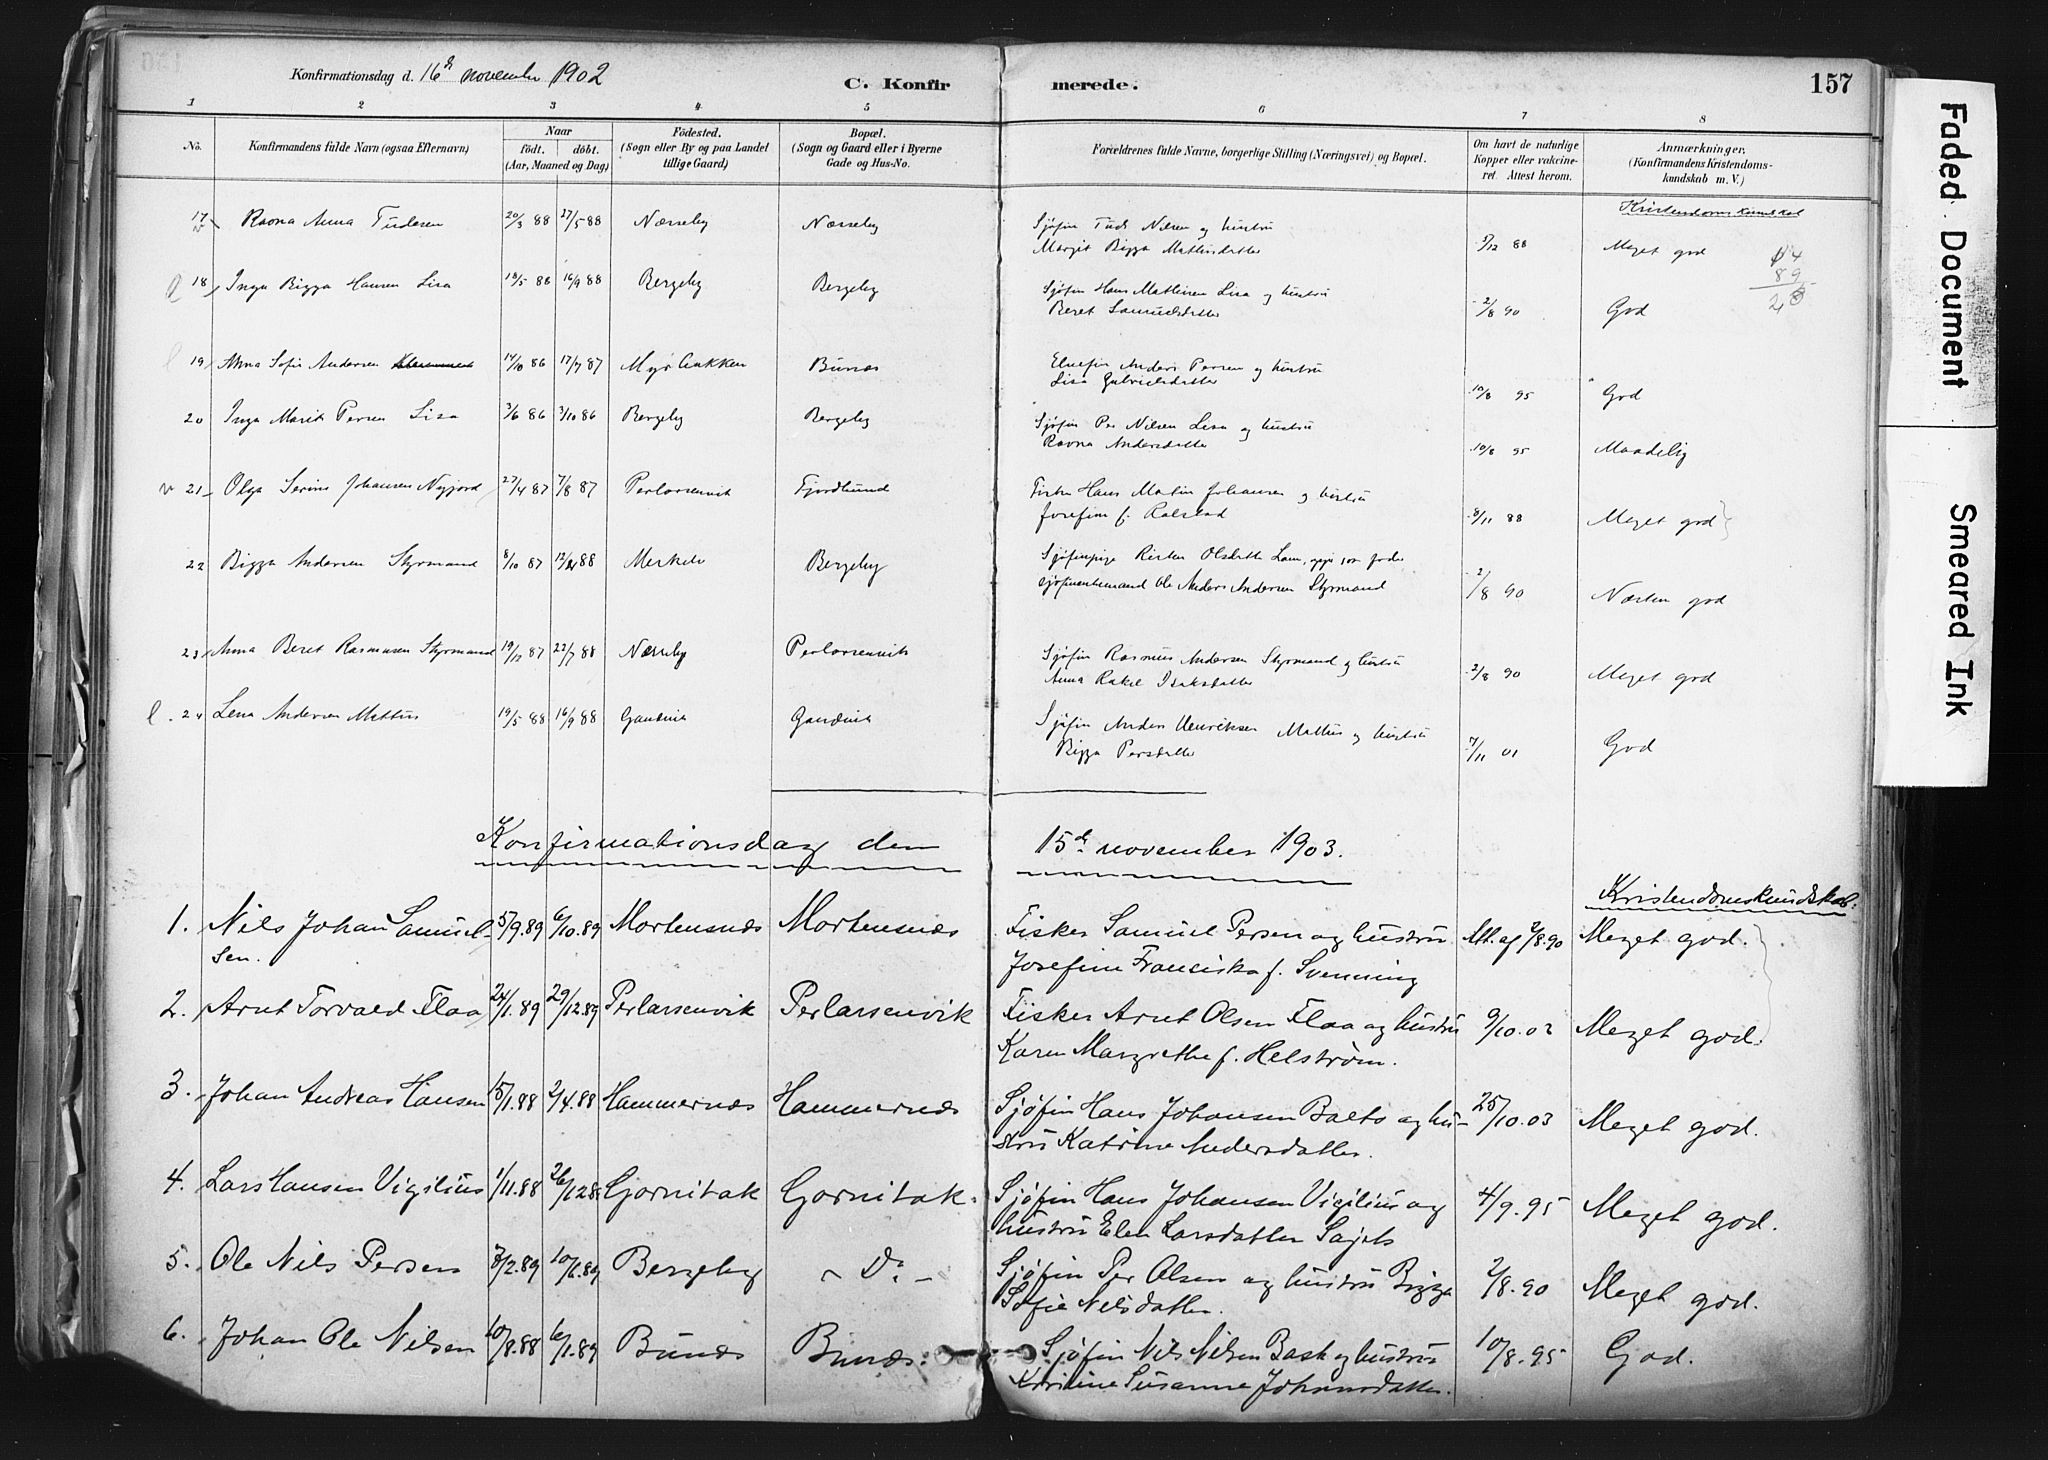 Konfirmationsdag d. 16de november 1902 C. Konfirmerede. 157
1 2 3 4 5 6 7 8
No. Konfirmandens fulde Navn (ogsaa Efternavn) Naar födt. döbt. (Aar, Maaned og Dag) Födested. (Sogn eller By og paa Landet tillige Gaard) Bopæl. (Sogn og Gaard eller i Byerne Gade og Hus-No. Forældrenes fulde Navne, borgerlige Stilling (Næringsvei) og Bopæl. Om havt de naturlige Kopper eller vakcineret. Attest herom. Anmærkninger. (Konfirmandens Kristendomskundskab m. V.)
Kristendomskundskab
17 Ravna Anna Tudesen 20/3 88 27/5 88 Næsseby Næsseby Sjøfin Tude Nilsen og hustru
Margit Bigga Mathisdatter 5/12 88 Meget god
14
89
18 Inga Bigga Hansen Lisa 18/5 88 16/9 88 Bergeby Bergeby Sjøfin Hans Mathisen Lisa og hustru
Beret Samuelsdatter 2/8 90 God
19 Anna Sofie Andersen 14/10 86 17/7 87 Bunæs Anders Persen og hustru
Lisa Gabrielsdatter 10/8 95 God
20 Inga Marit Persen Lisa 3/6 86 3/10 86 Bergeby Bergeby Sjøfin Per Nilsen Lisa og hustru
Ravna Andersdatter 10/8 95 Maadelig
21 Olga Serine Johansen Nyjord 27/4 87 7/8 87 Perlarsenvik Fjordbund Fisker Hans Martin Johansen og hustru
Josefine f. Ralstad 8/11 88 Meget god
22 Bigga Andersen Styrmand 8/10 87 88 Bergeby Sjøfinpige Risten Olsdatter
Ole Anders Andersen Styrmand 2/8 90 Næsten god
23 Anna Beret Rasmusen Styrmand 19/12 87 22/7 88 Næsseby Perlarsenvik Sjøfin Rasmus Andersen Styrmand og hustru
Anna Rakel Isaksdatter 2/8 90 Meget god
24 Lena Andersen Mattus 19/5 88 16/9 88 Gandvik Gandvik Sjøfin Anders Henriksen Mattus og hustru
Bigga Persdatter 7/11 01 God
Konfirmationsdag den 15de november 1903.
Kristendomskundskab:
1. Nils Johan Samuel- 5/9.89 6/10.89 Mortensnæs Mortensnæs Fisker Samuel Persen og hustru Att. af 2/8.90 Meget god.
sen. Josefine Franciska f. Svenning
2. Arnt Torvald Flaa 24/1.89 29/12.89 Perlarsenvik Perlarsenvik Fisker Arnt Olsen Flaa og hustru 9/10.03 Meget god.
Karen Margrethe f. Helstrøm.
3. Johan Andreas Hansen 15/1.88 2/4.88 Hammernæs Hammernæs Sjøfin Hans Johansen Balto og hu- 25/10.03 Meget god.
stru Katrine Andersdatter.
4. Lars Hansen Vigilius 1/11.88 26/12.8 Gornitak Gornitak. Sjøfin Hans Johansen Vigilius og 4/9.95 Meget god.
hustru Elen Larsdatter Sajets
5. Ole Nils Persen 3/2.89 10/6.89 Bergeby - Do. - Sjøfin Per Olsen og hustru Bigga 2/8.90 Meget god.
Sofie Nilsdatter.
6. Johan Ole Nilsen 10/8.88 6/1.89 Bunæs Bunæs. Sjøfin Nils Nilsen Bask og hustru 10/8.95 God.
Kristine Susanne Johannsdatter.
Faded Document
Smeared Ink